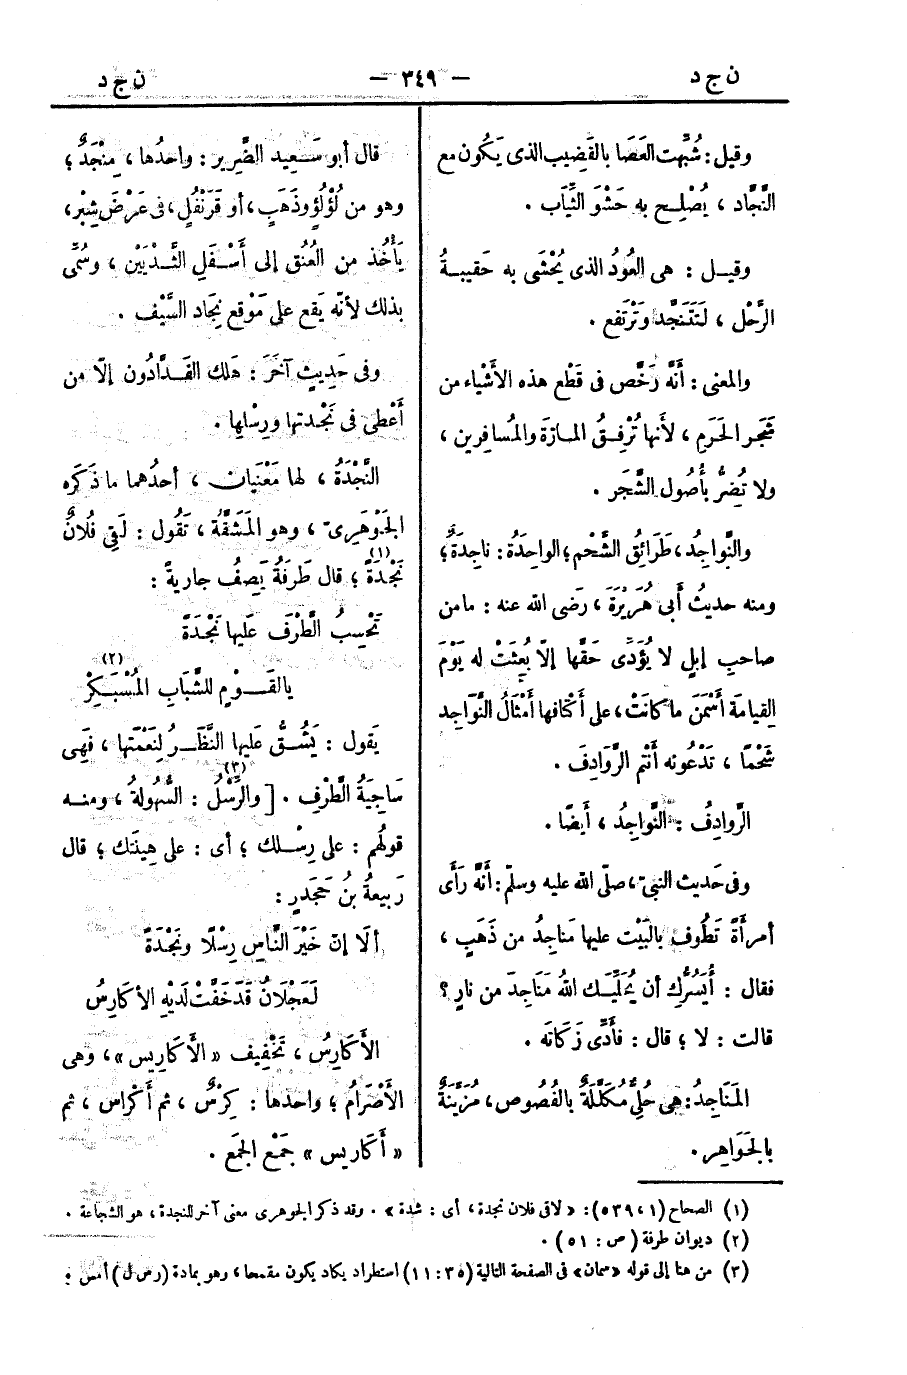 ن ج د
— ٣٤٩ —
ن ج د
وقيل : شُبِّهت العَصَا بالقَضِيب الذى يَكُون مع
النَّجَّاد ، يُصْلِح به حَشْوَ الثِّيَاب .
وقيل : هى العُودُ الذى يُحْشَى به حَقِيبةُ
الرَّحْل ، لتَتَنجَّد وتَرْتَفع .
والمعنى : أَنَّه رَخَّص فى قَطْع هذه الأَشْياء من
شَجَر الحَرَم ، لأَنها تُرْفِقُ المارَّة والمُسافِرين ،
ولا تُضرُّ بأُصُول الشَّجَر .
والنَّواجِدُ ، طَرَائِقُ الشَّحْم ؛ الواحِدَةُ : ناجِدَةٌ ؛
ومنه حديثُ أَبى هُرَيْرَةَ ، رَضى الله عنه : ما من
صاحبِ إبلٍ لا يُؤَدِّى حَقَّها إلّا بُعِثَتْ له يَوْمَ
القِيامَة أَسْمَن ما كانَتْ ، على أَكْتافها أَمْثَالُ النَّوَاجِد
شَحْمًا ، تَدْعُونه أَنْتم الرَّوَادِفَ .
الرَّوادِفُ : النَّواجِدُ ، أَيضًا .
وفى حَديث النبىّ ، صلّى الله عليه وسلّم : أَنَّه رَأَى
أمرأَةً تَطُوف بالبَيْت عليها مَناجِدُ من ذَهَبٍ ،
فقال : أَيَسُرُّكِ أن يُحَلِّيَك اللهُ مَنَاجِدَ من نارٍ ؟
قالت : لا ؛ قال : فأَدِّى زَكَاتَه .
المَنَاجِدُ : هى حُلِىٌّ مُكَلَّلَةٌ بالفُصُوص ، مُزَيَّنَةٌ
بالجَوَاهِر .
قال أبو سَعِيد الضَّرِير : واحدُها ، مِنْجَدٌ ؛
وهو من لُؤْلُؤٍ وذَهَبٍ ، أو قَرَنْفُلٍ ، فى عَرْض شِبْر ،
يَأْخُذ من العُنُق إلى أَسْفَلِ الثَّدْيَيْن ، وسُمِّى
بذلك لأنّه يَقع على مَوْقع نِجَاد السَّيْف .
وفى حَدِيثٍ آخَرَ : هَلك الفَدَّادُون إلّا من
أَعْطى فى نَجْدتها ورِسْلِها .
النَّجْدَةُ ، لها مَعْنَيان ، أحدُهما ما ذَكَره
الجَوْهَرِىّ ، وهو المَشَقَّةُ ، تَقُول : لَقِى فُلانٌ
نَجْدَةً (١) ؛ قال طَرَفَةُ يَصِفُ جاريةً :
تَحْسِبُ الطَّرْفَ عَلَيها نَجْدَةً
يالقَوْمٍ للشَّبَابِ المُسْبَكِرّْ (٢)
يَقول : يَشُقُّ عَليها النَّظَرُ لِنَعْمَتها ، فَهِى
سَاجِيَةُ الطَّرْفِ . (٣) [ والرِّسْلُ : السُّهُولةُ ، ومنه
قولُهم : على رِسْلك ؛ أى : على هِينَتك ؛ قال
رَبيعةُ بنُ جَحْدَرٍ :
أَلَا إنّ خَيْرَ النَّاسِ رِسْلًا ونَجْدَةً
لَعَجْلَانُ قَدْ خَفَّتْ لَدَيْهِ الأكَارِسُ
الأَكَارِسُ ، تَخْفِيف « الأَكَارِيس » ، وهى
الأَصْرَامُ ؛ واحدها : كِرْسٌ ، ثم أَكْراس ، ثم
« أَكَارِيس » جَمْع الجَمْع .
(١) الصحاح (١ ، ٥٣٩) : « لاقى فلان نجدة ، أى : شدة » . وقد ذكر الجوهرى معنى آخر للنجدة ، هو الشجاعة .
(٢) ديوان طرفة ( ص : ٥١ ) .
(٣) من هنا إلى قوله « سمان » فى الصفحة التالية (٣٥ : ١١) استطراد يكاد يكون مقحما ، وهو بمادة (رس ل) أمس .